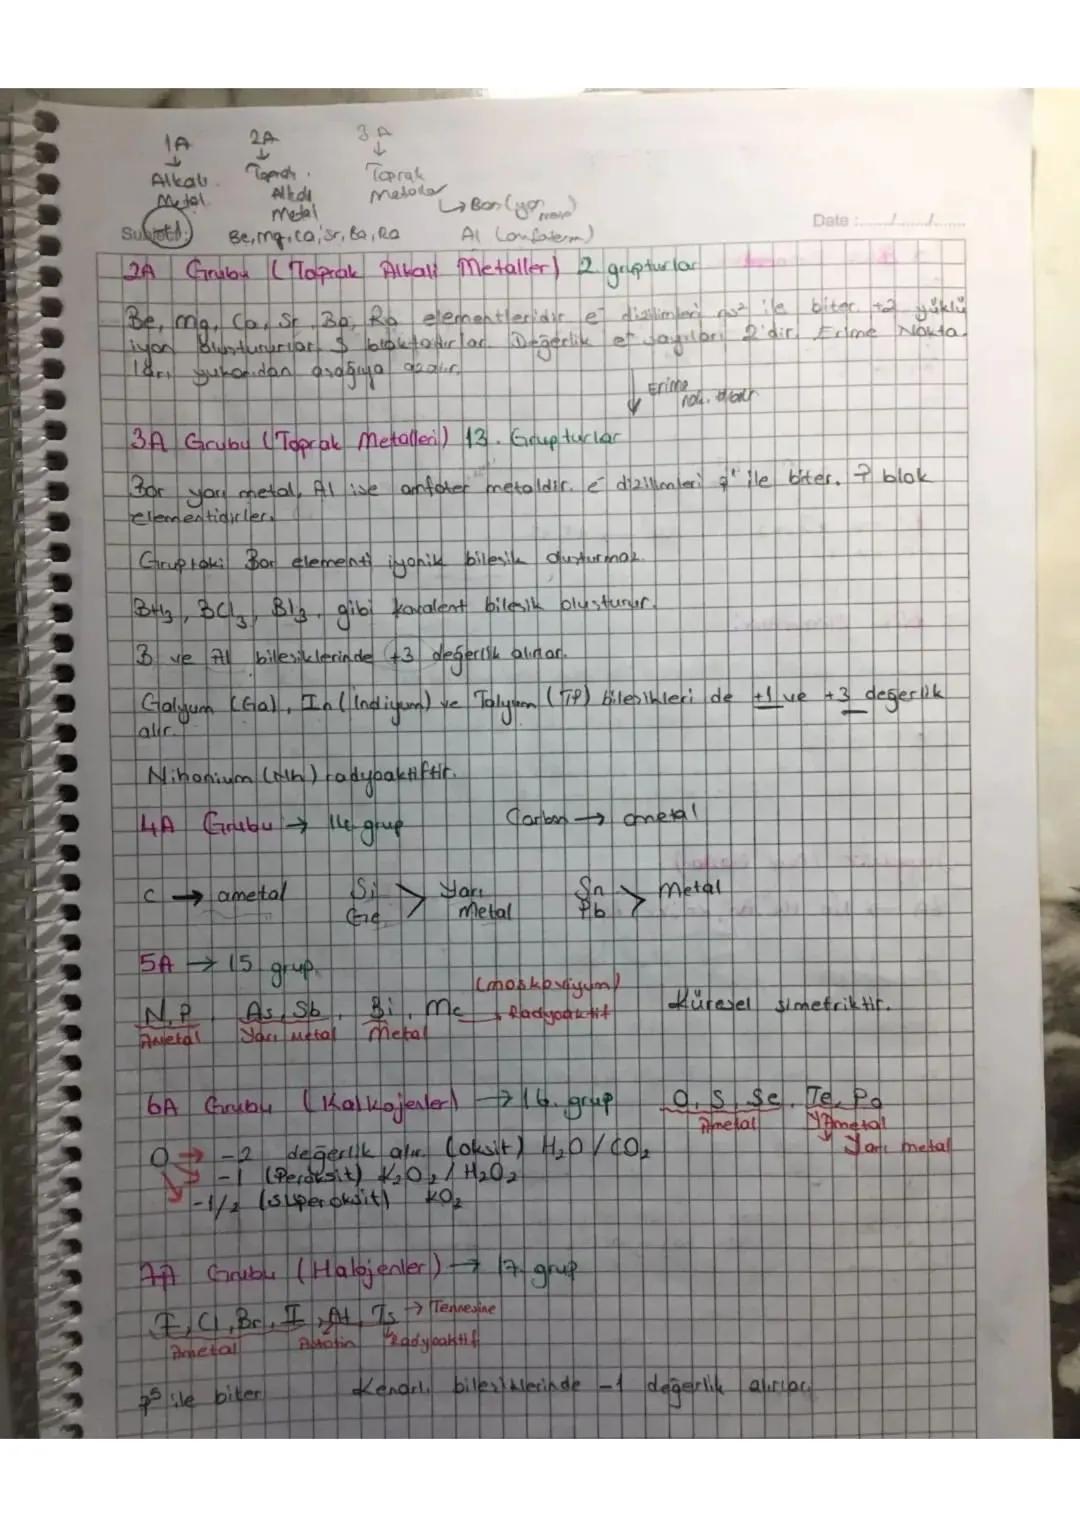 1A 2A 3A
↓ ↓ ↓
Alkali Metal
Toprak Alkali Metal
Toprak Metaller
↳ Bor (yarı metal)
Subject:
Be, mg, ca, Sr, Ba, Ra
Al (amfoterm)
Date :....../....../......
2A Grubu (Toprak Alkali Metaller) 2. grupturlar
Be, mg, Ca, Sr, Ba, Ra elementleridir. e⁻ dizilimleri ns² ile biter. +2 yüklü
iyon oluştururlar. S bloktadırlar. Değerlik e⁻ sayıları 2'dir. Erime Nokta
ları yukarıdan aşağıya azalır.
↓ Erime nok. azalır
3A Grubu (Toprak Metalleri) 13. Grupturlar
Bor yarı metal, Al ise amfoter metaldir. e⁻ dizilimleri p¹ ile biter. P blok
elementidirler.
Gruptaki Bor elementi iyonik bileşik oluşturmaz.
BH₃, BCl₃, BI₃, gibi kovalent bileşik oluşturur.
B ve Al bileşiklerinde +3 değerlik alırlar.
Galyum (Ga), In (İndiyum) ve Talyum (Tl) bileşikleri de +1 ve +3 değerlik
alır.
Nihonium (Nh) radyoaktiftir.
4A Grubu → 14. grup Carbon → ametal
C → ametal Si Ge > Yarı Metal Sn Pb > Metal
5A → 15. grup.
(moskovyum)
N, P, As, Sb, Bi, Mc → Radyoaktif Küresel simetriktir.
Ametal Yarı metal Metal
6A Grubu (Kalkojenler) → 16. grup O, S, Se, Te, Po
Ametal Yarı metal
O → -2 değerlik alır. (oksit) H₂O / CO₂
→ -1 (Peroksit) K₂O₂ / H₂O₂
→ -1/2 (süperoksit) KO₂
7A Grubu (Halojenler) → 17. grup
F, Cl, Br, I, At, Ts → Tennesine
Ametal Astatin Radyoaktif
p⁵ ile biter Kararlı bileşiklerinde -1 değerlik alırlar.